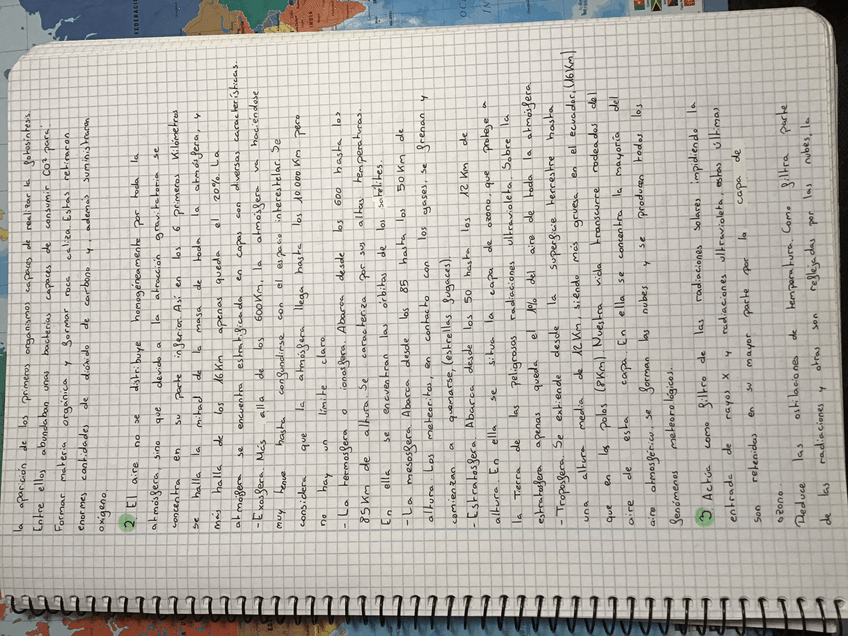 la aparición de los primeros organismos capaces de realizar la fotosíntesis.
Entre ellos abundaban unas bacterias capaces de consumir CO² para
Formar materia orgánica y formar roca caliza. Estas retiraron
enormes cantidades de dióxido de carbono y, además suministraron
oxígeno.
2 El aire no se distribuye homogéneamente por toda la
atmósfera sino que devido a la atracción gravitatoria se
concentra en su parte inferior. Así en los 6 primeros Kilómetros
se halla la mitad de la masa de toda la atmósfera, y
más halla de los 16Km apenas queda el 20%. La
atmósfera se encuentra estratificada en capas con diversas características.
- Exosfera. Más alla de los 600Km, la atmósfera va haciéndose
muy tenue hasta confundirse con el espacio interestelar. Se
considera que la atmósfera llega hasta los 10.000 Km pero
no hay un límite claro.
- La termosfera o ionosfera. Abarca desde los 600 hasta los
85Km de altura. Se caracteriza por sus altas temperaturas.
En ella se encuentran las órbitas de los satélites.
- La mesosfera. Abarca desde los 85 hasta los 50Km de
altura. Los meteoritos, en contacto con los gases, se frenan y
comienzan a quemarse, (estrellas fugaces).
- Estratosfera. Abarca desde los 50 hasta los 12 Km de
altura. En ella se situa la capa de ozono, que protege a
la Tierra de las peligrosas radiaciones ultravioleta. Sobre la
estratosfera apenas queda el 1% del aire de toda la atmósfera
- Troposfera. Se extiende desde la superficie terrestre hasta
una altura media de 12Km, siendo más gruesa en el ecuador, (16Km)
que en los polos (8Km). Nuestra vida transcurre rodeados del
aire de esta capa. En ella se concentra la mayoría del
aire atmosférico se forman las nubes y se producen todos los
fenómenos meteorológicos.
3 Actúa como filtro de las radiaciones solares impidiendo la
entrada de rayos X y radiaciones ultravioleta, estas últimas
son retenidas en su mayor parte por la capa de
ozono.
Reduce las oscilaciones de temperatura. Como filtra parte
de las radiaciones y otras son reflejadas por las nubes, la